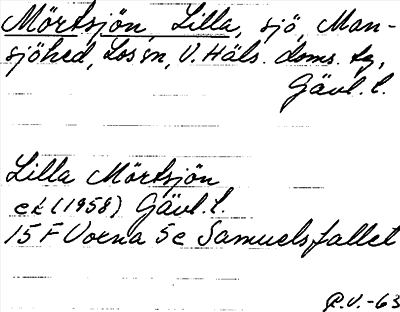 Mörtsjön, Lilla, sjö, Man-
sjöhed, Los sn, V. Häls. doms. tg,
Gävl. l.
Lilla Mörtsjön
ek (1958) Gävl. l.
15 F Voxna 5c Samuelsfallet
R.V.-63